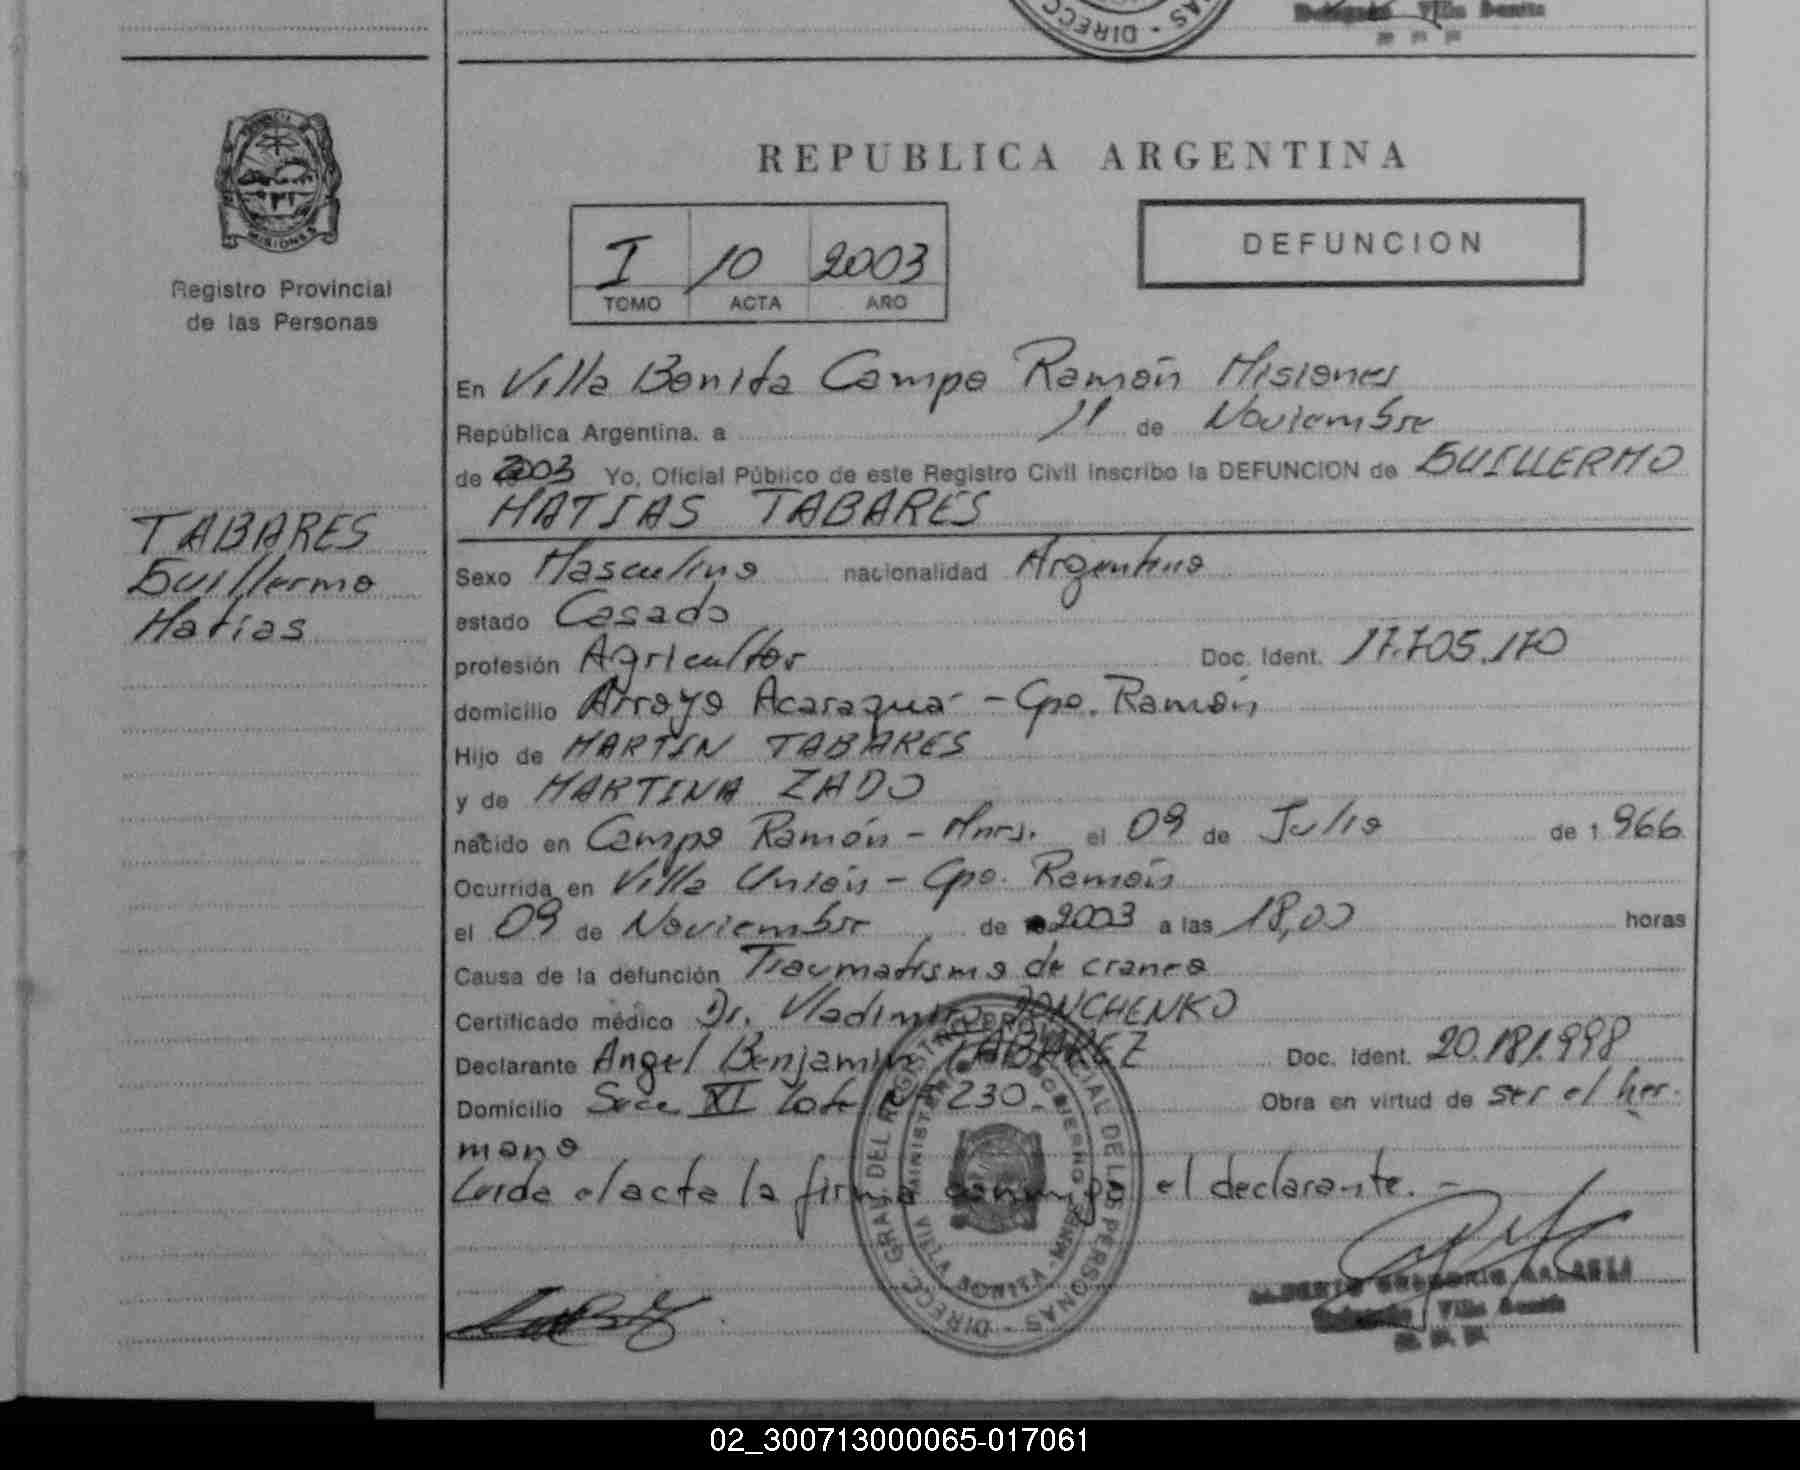 DIRECC
NAS
Delegado Villa Bonita
PROVINCIA
MISIONES
Registro Provincial
de las Personas
TABARES
Guillermo
Matias
REPUBLICA ARGENTINA
I 10 2003
TOMO ACTA AÑO
DEFUNCION
En Villa Bonita Campo Ramón Misiones
República Argentina, a 11 de Noviembre
de 2003 Yo, Oficial Público de este Registro Civil inscribo la DEFUNCION de GUILLERMO
MATIAS TABARES
Sexo Masculino nacionalidad Argentino
estado Casado
profesión Agricultor Doc. Ident. 17.705.170
domicilio Arroyo Acaragua - Cpo. Ramón
Hijo de MARTIN TABARES
y de MARTINA ZADO
nacido en Campo Ramón - Mnes. el 09 de Julio de 1.966
Ocurrida en Villa Unión - Cpo. Ramón
el 09 de Noviembre de 2003 a las 18,00 horas
Causa de la defunción Traumatismo de craneo
Certificado médico Dr. Vladimiro
Declarante Angel Benjamin TABAREZ Doc. Ident. 20.181.998
Domicilio Secc XI Lote Nº 230.- Obra en virtud de ser el her-
mano
Leida el acta la firma conmigo el declarante.-
DIRECC. GRAL. DEL REGISTRO PROVINCIAL DE LAS PERSONAS
MINISTERIO DE GOBIERNO - MNES.
VILLA BONITA
Delegado Villa Bonita
02_300713000065-017061